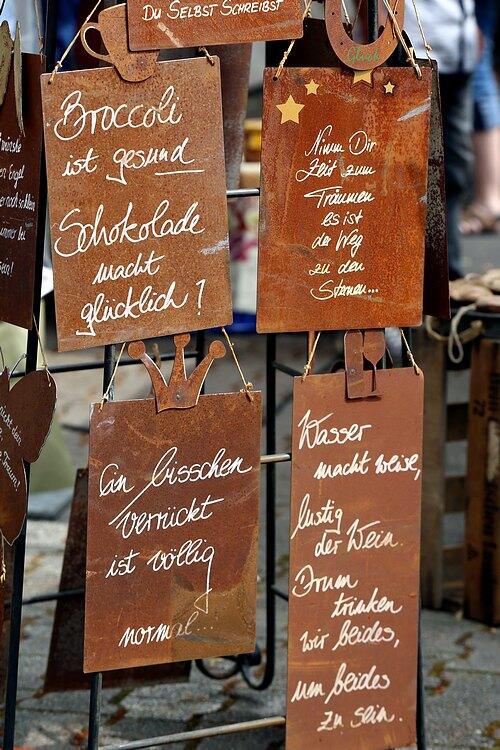 Du Selbst Schreibst
Glück
Broccoli
ist gesund
Schokolade
macht
glücklich !
Nimm Dir
Zeit zum
Träumen
es ist
der Weg
zu den
Sternen...
Ein bisschen
verrückt
ist völlig
normal...
Wasser
macht weise,
lustig
der Wein.
Drum
trinken
wir beides,
um beides
zu sein.